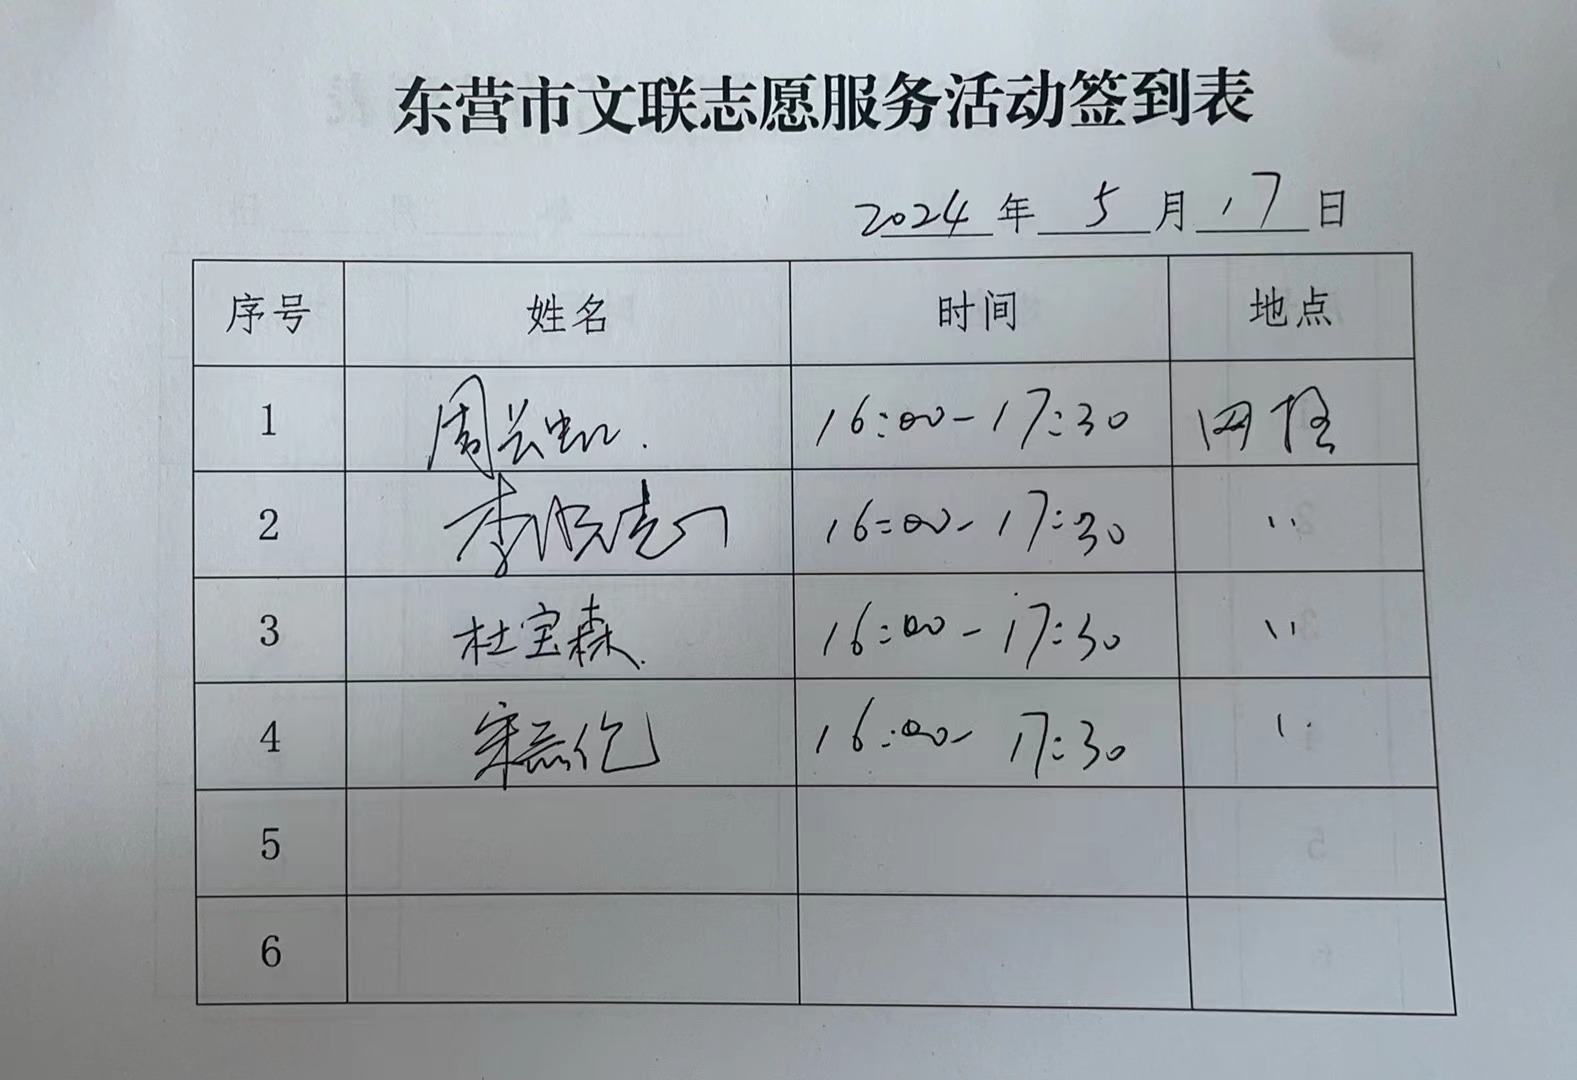 东营市文联志愿服务活动签到表
2024年 5月 17日
序号 姓名 时间 地点
1 周 16:00-17:30 网格
2 李 16:00-17:30 ''
3 杜宝森 16:00-17:30 ''
4 宋磊 16:00-17:30 ''
5
6